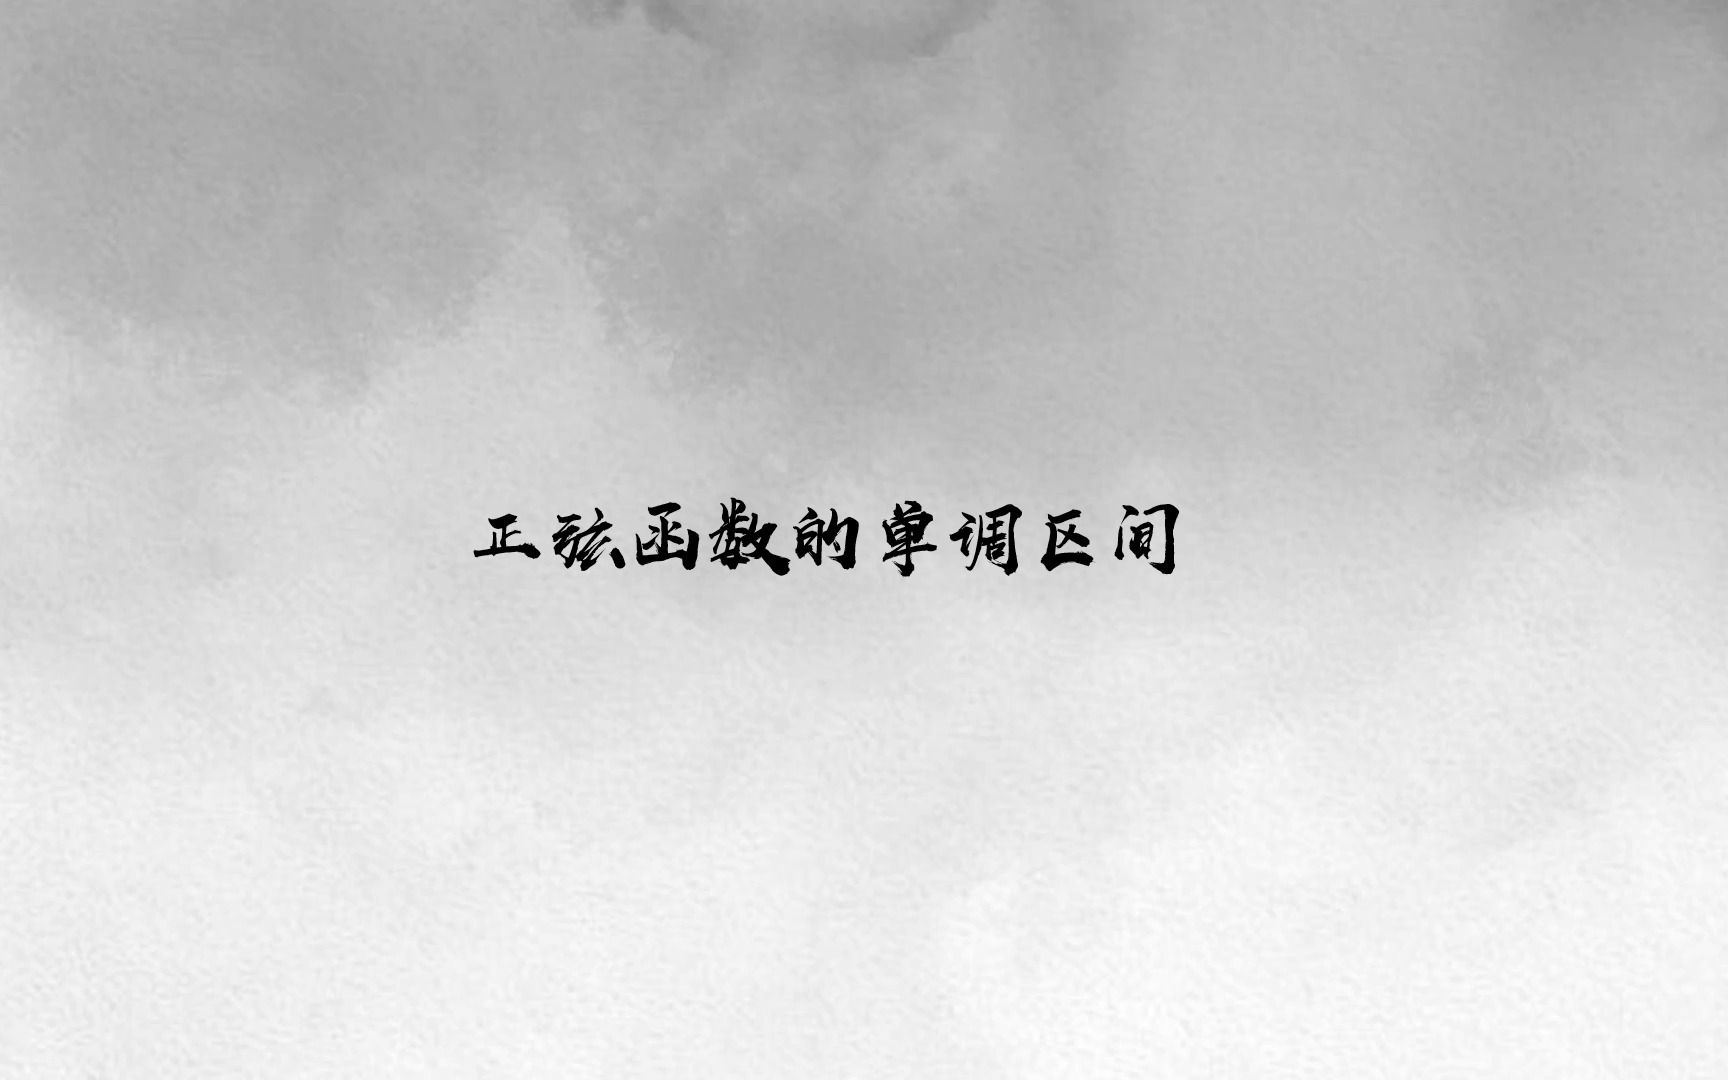 正弦函数的单调区间